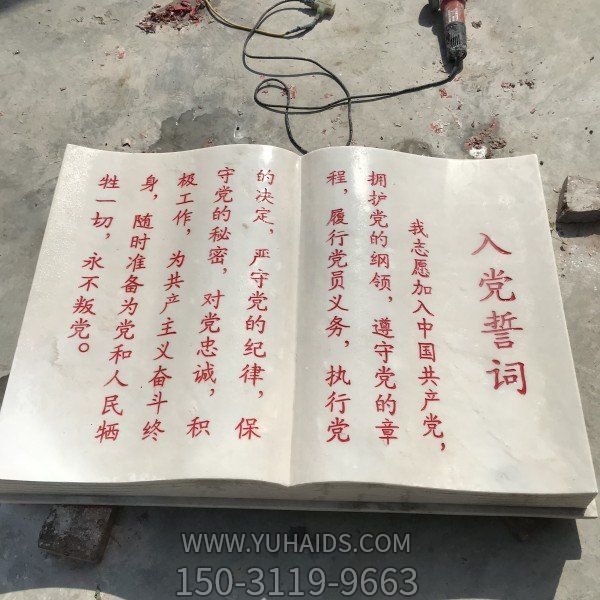 入党誓词
我志愿加入中国共产党，
拥护党的纲领，遵守党的章
程，履行党员义务，执行党
的决定，严守党的纪律，保
守党的秘密，对党忠诚，积
极工作，为共产主义奋斗终
身，随时准备为党和人民牺
牲一切，永不叛党。
WWW.YUHAIDS.COM
150-3119-9663